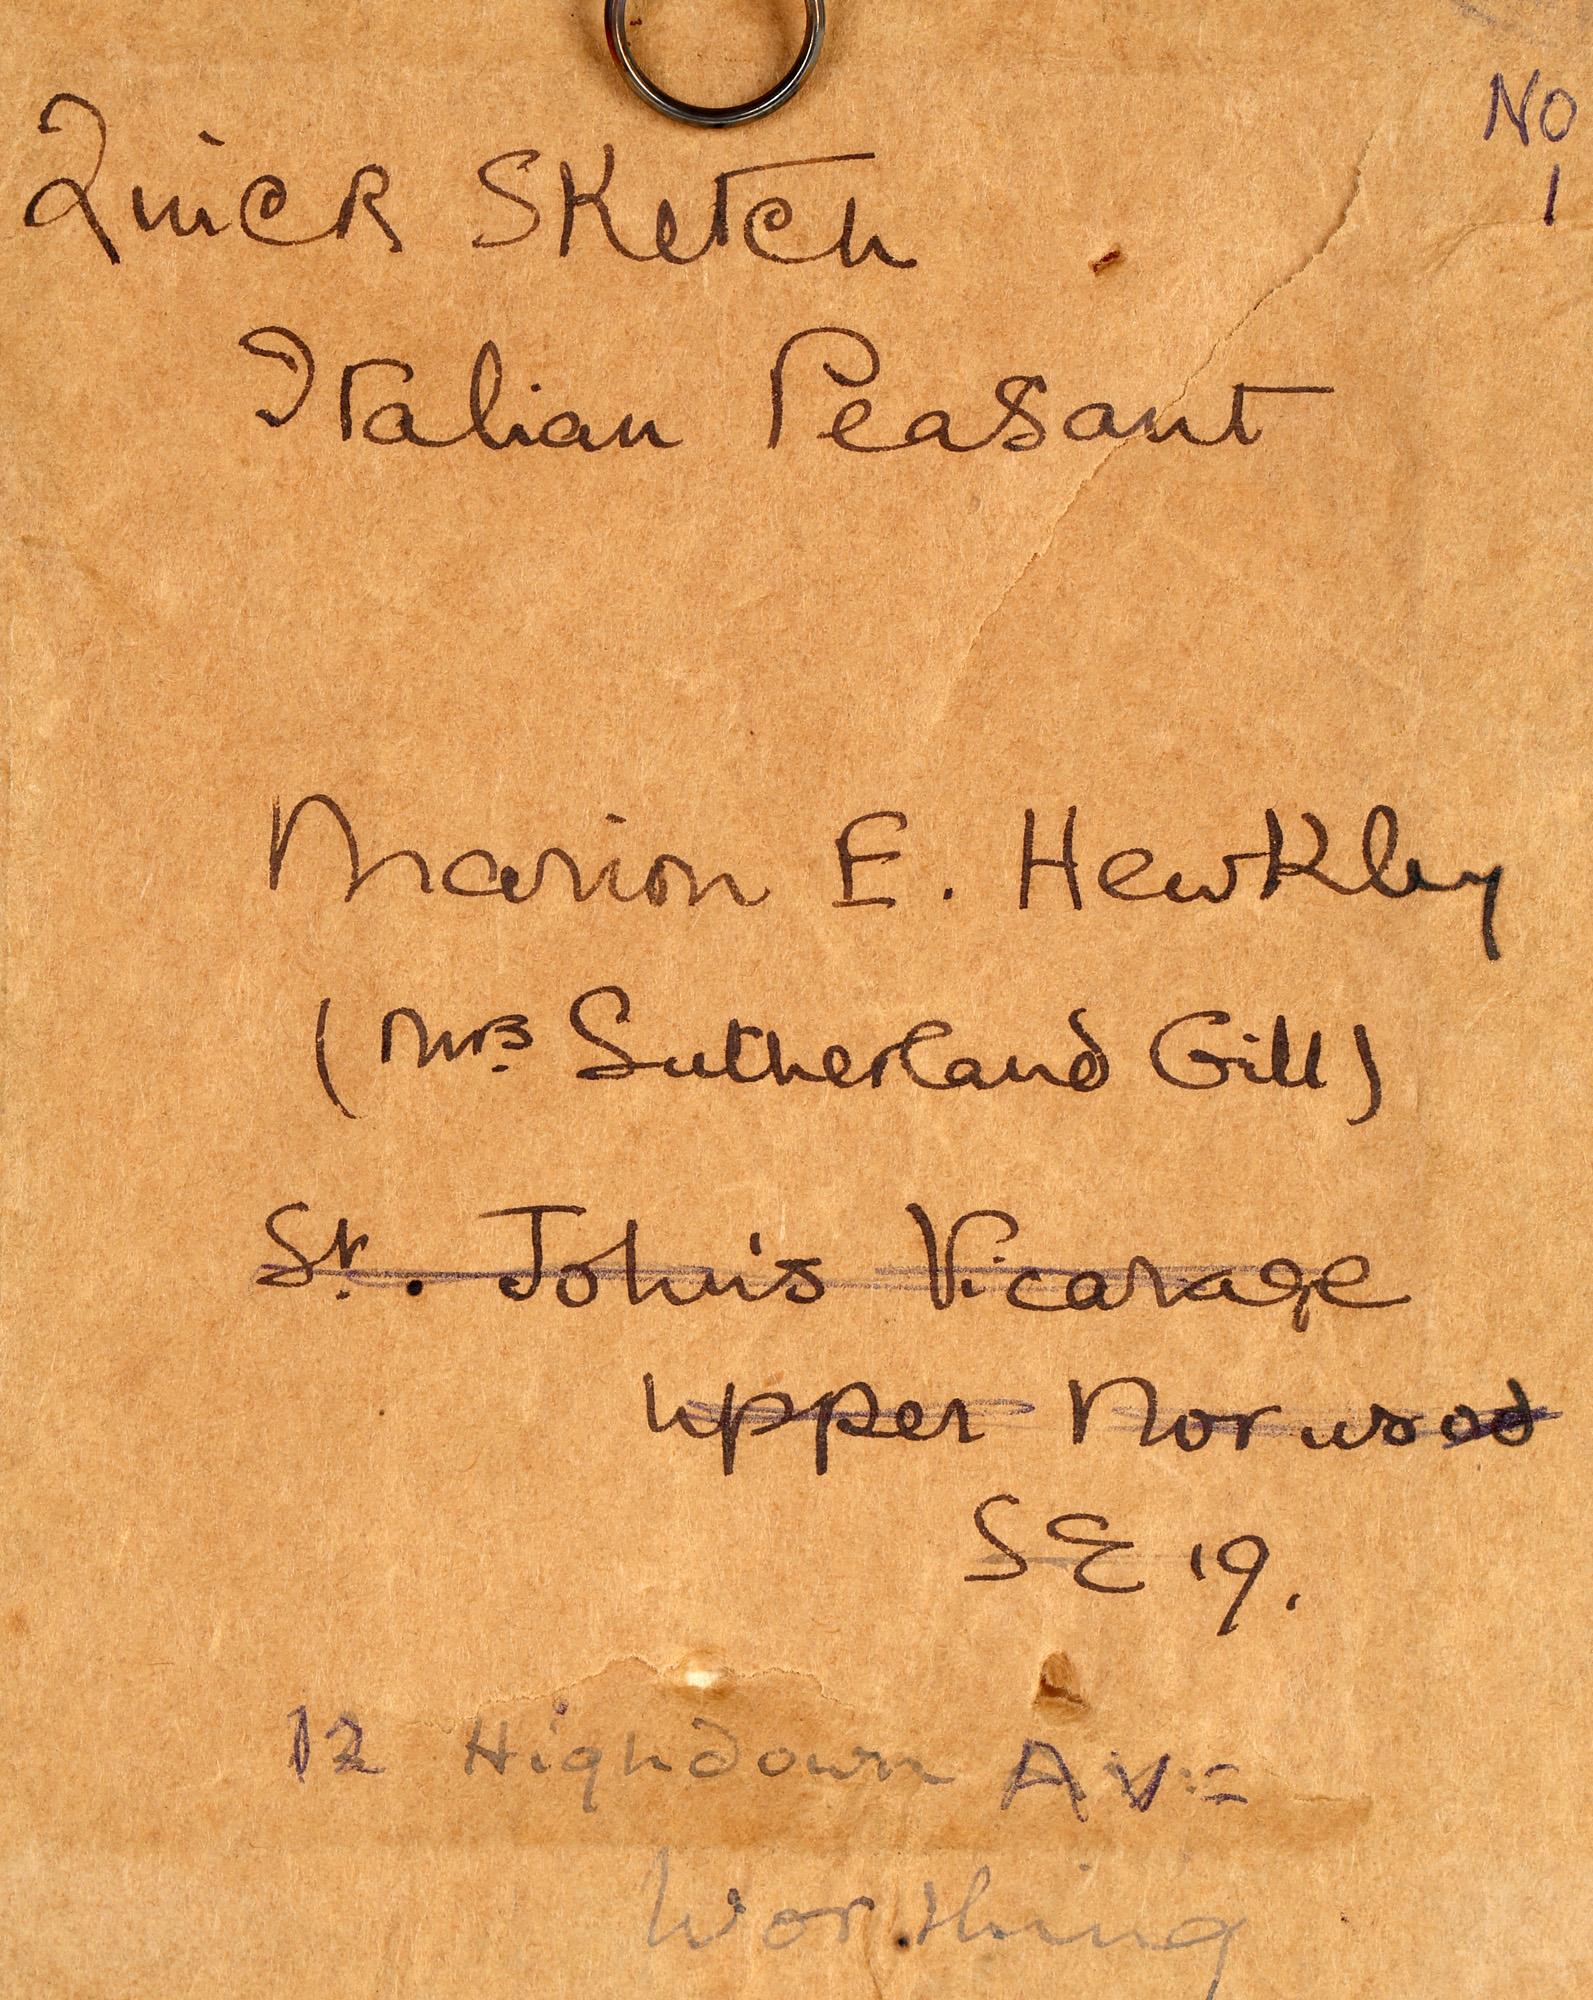 No
1
Quick Sketch
Italian Peasant
Marion E. Hewkley
(Mrs. Sutherland Gill)
St. John's Vicarage
Upper Norwood
SE 19.
12 Highdown Ave
Worthing